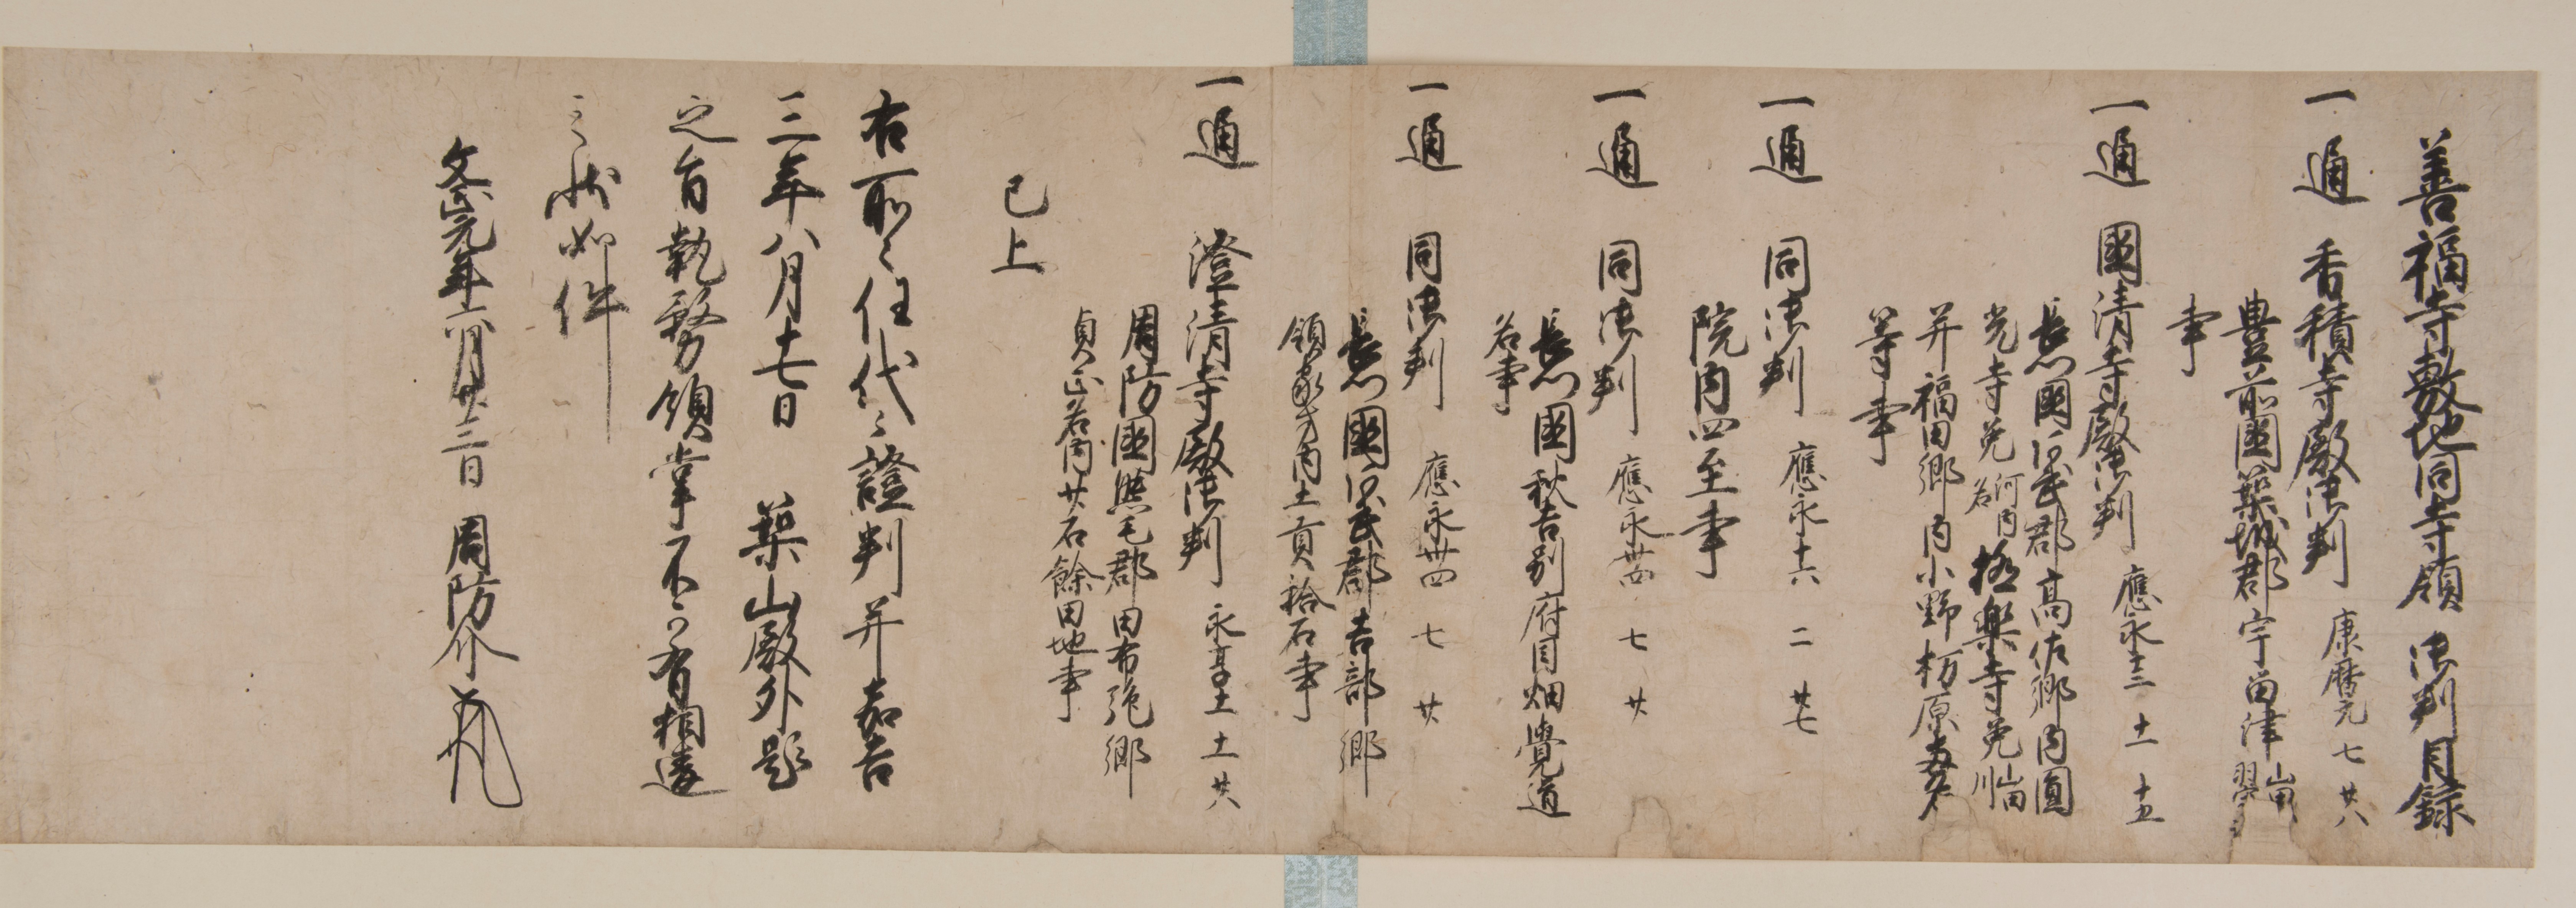 善福寺敷地同寺領御判目録
一通 香積寺殿御判 康暦元 七 廿八
豊前國築城郡宇留津
事
一通 國清寺殿御判 應永三 十一 十五
長門國阿武郡高佐郷内圓
光寺免河内名 極楽寺免
并福田郷内小野杤原
等事
一通 同御判 應永十六 二 廿七
院内四至事
一通 同御判 應永卅四 七 廿
長門國秋吉別府目畑覺道
名事
一通 同御判 應永卅四 七 廿
長門國阿武郡吉部郷
領家方内土貢拾石事
一通 澄清寺殿御判 永享十一 十一 廿六
周防國熊毛郡田布施郷
貞正名内廿石餘田地事
已上
右所々任代々證判并嘉吉
三年八月十七日 築山殿外題
之旨執務領掌不可有相違
之状如件
文正元年六月廿三日 周防介